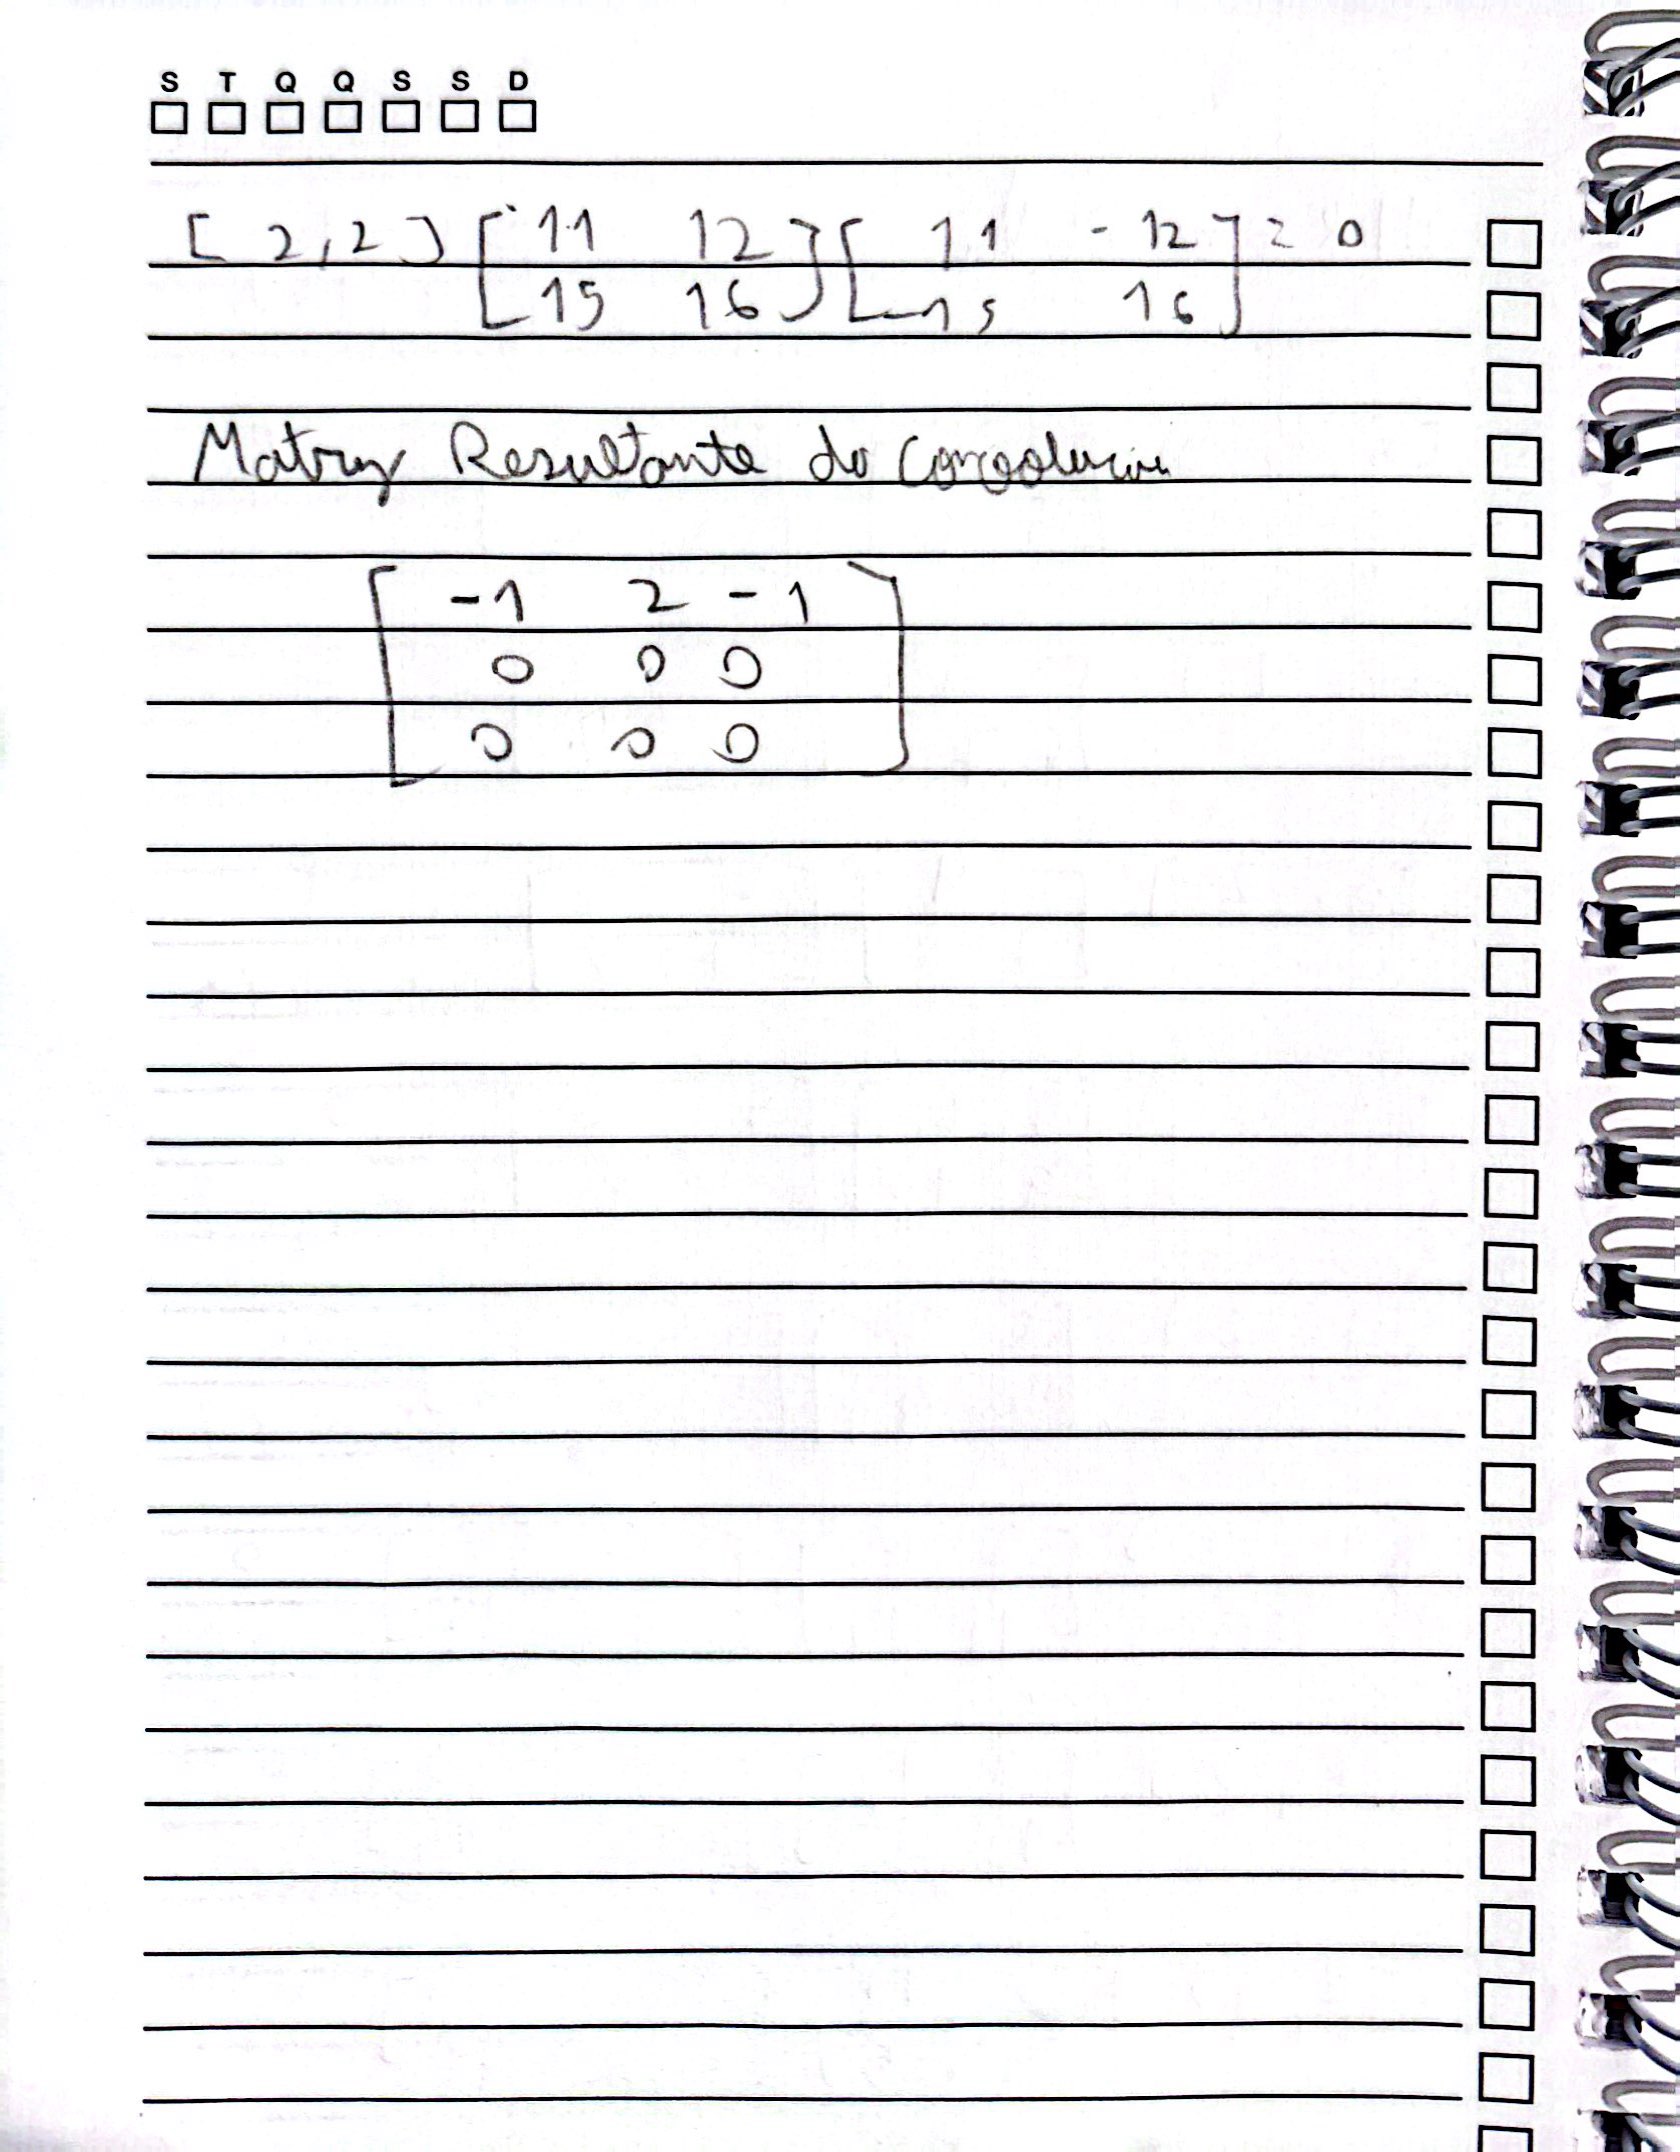 S T Q Q S S D
[ 2,2 ] [ 11 12 ] [ 11 -12 ] = 0
[ 15 16 ] [ -15 16 ]
Matriz Resultante da Convolucion
[ -1 2 -1 ]
0 0 0
0 0 0